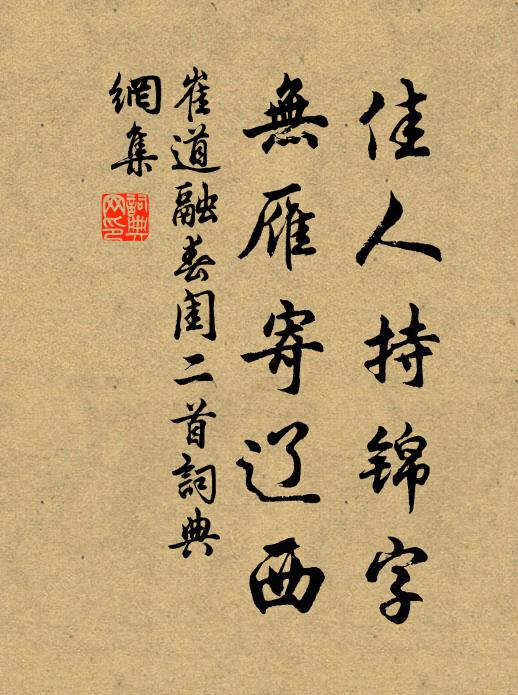 佳人持锦字
無雁寄辽西
崔道融春闺二首詞典
網集
詞典
网印